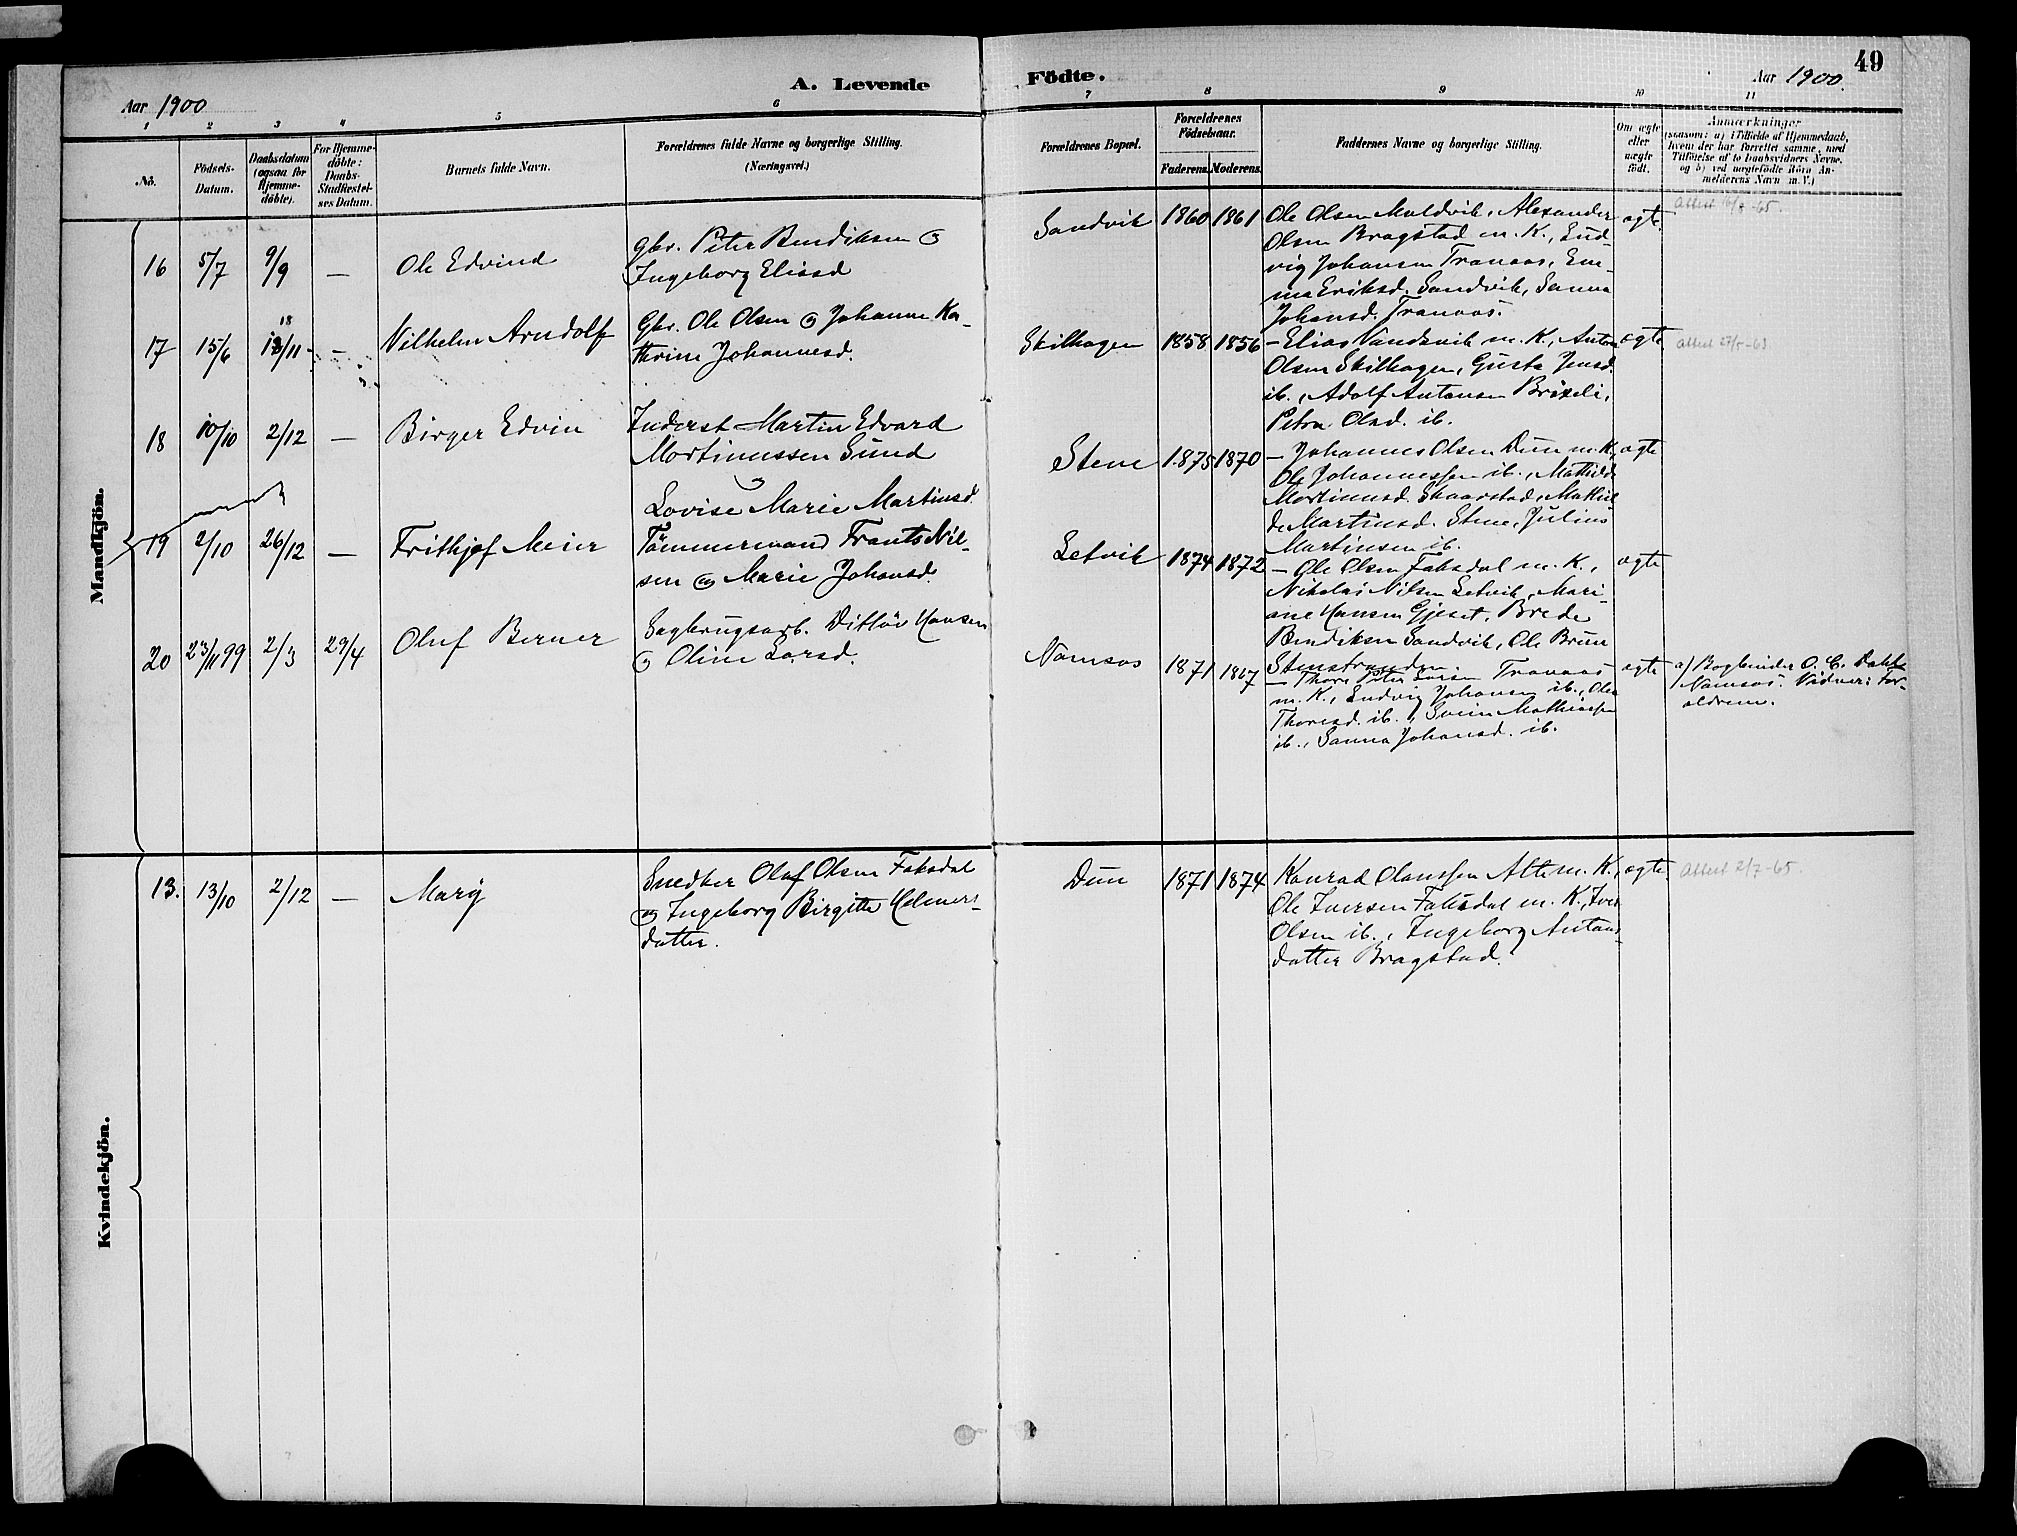 49
A. Levende Födte.
Aar 1900
Aar 1900.
1 2 3 4 5 6 7 8 9 10 11
No.
Födsels-
Datum.
Daabsdatum
(ogsaa for
Hjemme-
döbte).
For Hjemme-
döbte:
Daabs-
Stadfæstel-
ses Datum.
Barnets fulde Navn.
Forældrenes fulde Navne og borgerlige Stilling.
(Næringsvei.)
Forældrenes Bopæl.
Forældrenes
Födselsaar.
Faderens. Moderens.
Faddernes Navne og borgerlige Stilling.
Om ægte
eller
uægte
födt.
Anmærkninger
(saasom: a) i Tilfælde af Hjemmedaab,
hvem der har forrettet samme, med
Tilföielse af to Daabsvidners Navne.
og b) ved uægtefödte Börn An-
melderens Navn m. V.)
Mandkjön.
16 5/7 9/9 — Ole Edvind
Gbr. Peter Bendiksen o
Ingeborg Eliasd
Sandvik 1860 1861
Ole Olsen Muldvik, Alexander
Olsen Bragstad m. K., Lud-
vig Johansen Tranaas, Em-
ma Eriksd. Sandvik, Sanna
Johansd. Tranaas.
ægte
Attest 16/8 -65.
17 15/6 18/11 — Vilhelm Arndolf
Gbr. Ole Olsen o Johanna Ka-
thrine Johannesd.
Skilhagen 1858 1856
— Elias Vandsvik m. K., Anton
Olsen Skilhagen, Gusta Jensd.
ib., Adolf Antonsen
Petra Olsd. ib.
ægte
Attest 27/5 -63
18 10/10 2/12 — Birger Edvin
Inderst Martin Edvard
Martinussen Sund
o
Lovise Marie Martinsd.
Stene 1875 1870
— Johannes Olsen Dun m. K.,
Ole Johannessen ib., Mathilde
Martinusd. Skaarstad, Mathil
de Martinsd. Stene, Julius
Martinsen ib.
ægte
19 2/10 26/12 — Frithjof Meier
Tömmermand Frants Nil-
sen og Marie Johansd.
Setvik 1874 1872
— Ole Olsen Faksdal m. K.,
Nikolai Nilsen Setvik, Mari-
ane Hansen Gjeset, Brede
Bendiksen Sandvik, Ole Brun
Stensstranden.
ægte
20 23/11 99 2/3 29/4 Oluf Berner
Sagbrugsarb. Ditlöv Hansen
o Oline Larsd.
Namsos 1871 1867
— Thore Peter Tranaas
m. K., Ludvig Johansen ib., Olea
Thoresd. ib., Svein Mathiassen
ib., Sanna Johansd. ib.
ægte
a) Bogbinder O. C. Dahl
Namsos. Vidner: For-
ældrene.
Kvindekjön.
13. 13/10 2/12 — Mary
Snedker Olaf Olsen Faksdal
og Ingeborg Birgitte Helmers-
datter.
Dun 1871 1874
Konrad Olaussen Alte m. K.,
Ole Iversen Faksdal m. K., Iver
Olsen ib., Ingeborg Antons-
datter Bragstad.
ægte
Attest 2/7 -65.